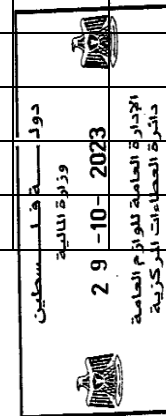 دولـــــة فـلـــسطين
وزارة المالية
2 9 -10- 2023
الإدارة العامة للوازم العامة
دائرة العطاءات المركزية